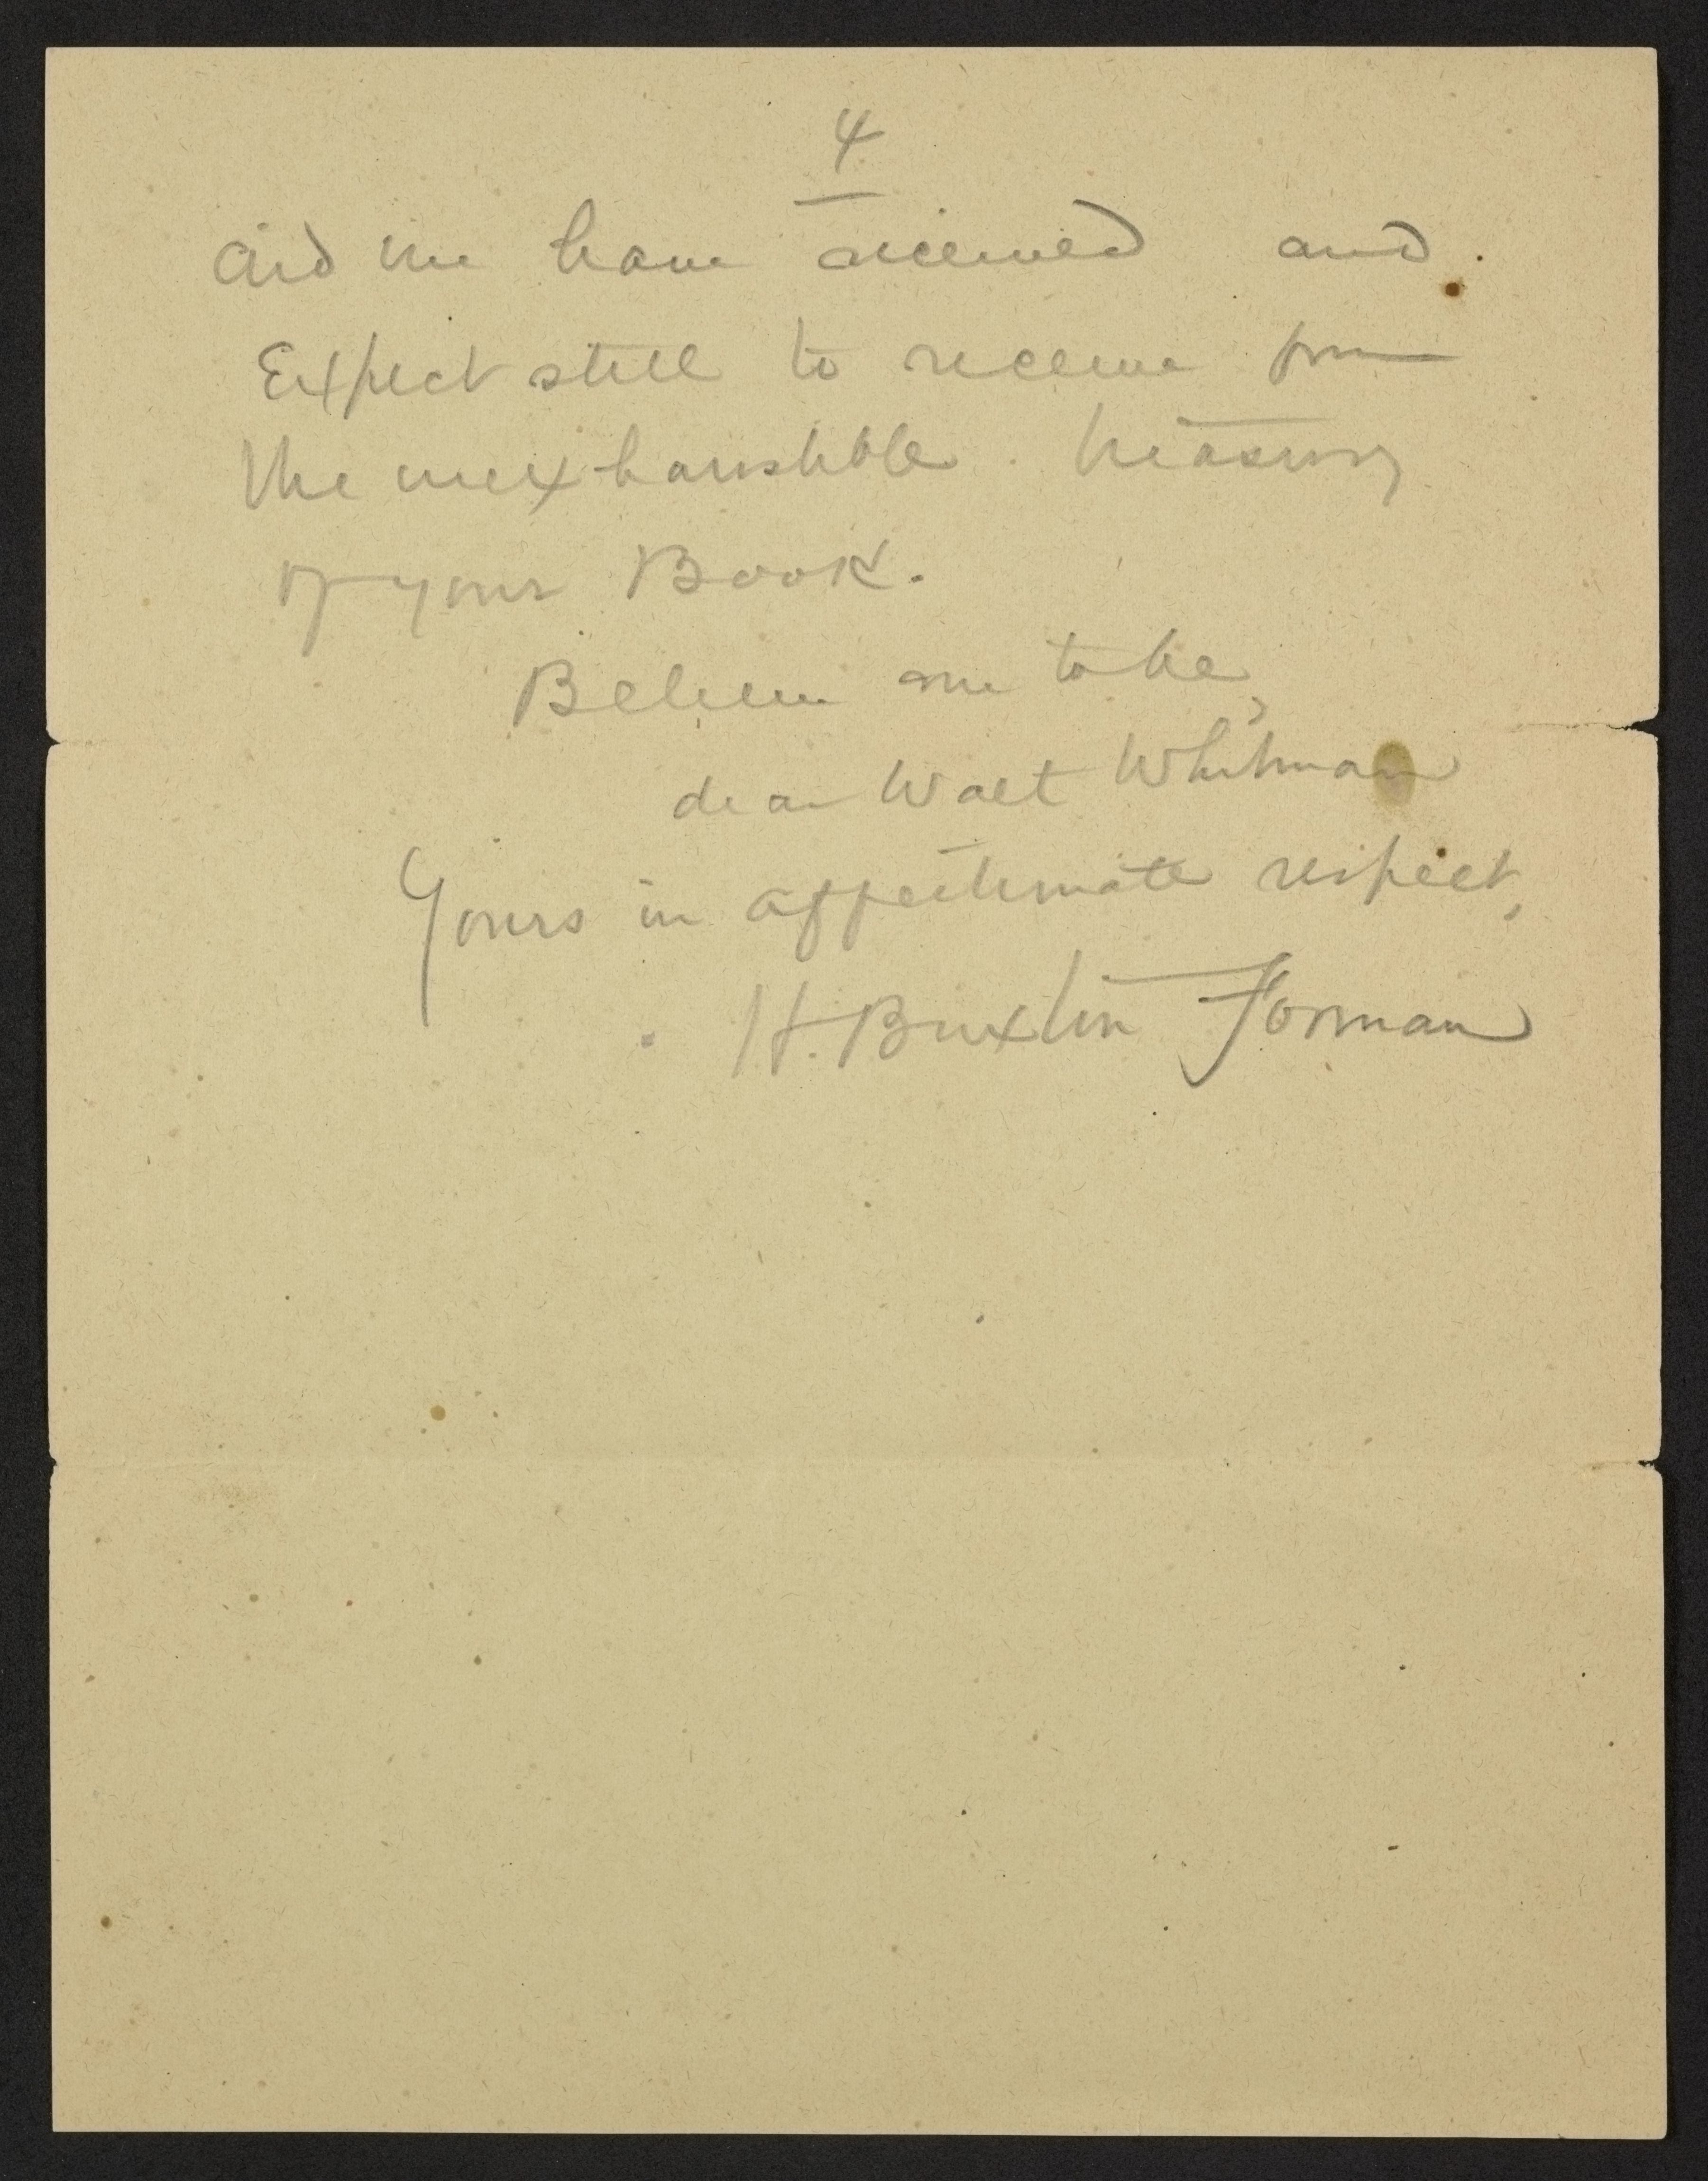 4
aid we have received and
Expect still to receive from
the inexhaustible treasury
of your Book.
Believe me to be,
dear Walt Whitman
Yours in affectionate respect,
H. Buxton Forman